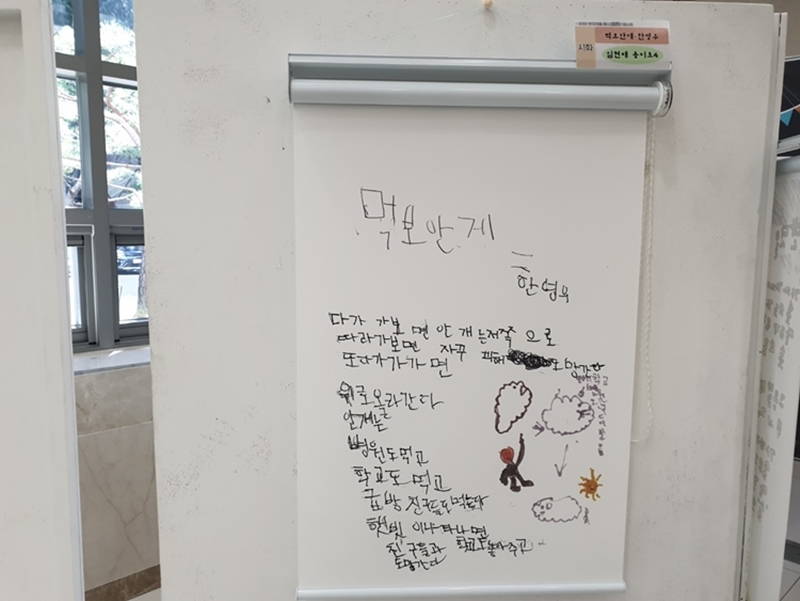 시화
먹보안개-한영우
먹보안게
한영우
다가 가보 면 안 개 는저쪽 으로
따라가보면 자꾸 피해 도망간다
또다가가가 면
위로올라간다
안개는
병원도먹고
학교도 먹고
금방 친구들도먹는다
햇빛 이나 타나 면
친구들과 학교도놓아주고
도망간다